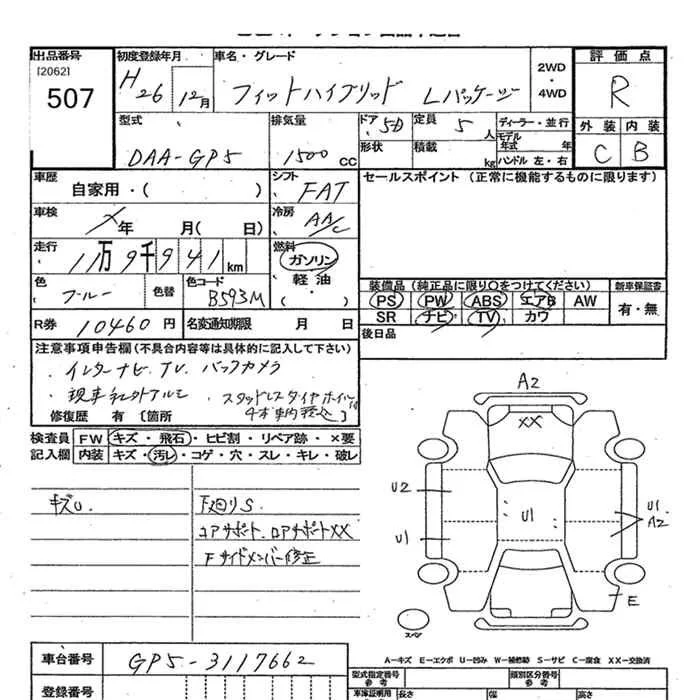 出品番号 初度登録年月 車名・グレード 2WD・4WD 評価点
[2062]
507 H26 12月 フィットハイブリッド Lパッケージ R
型式 排気量 ドア 5D 定員 5人 ディーラー・並行 外装 内装
モデル年式 年
DAA-GP5 1500CC 形状 積載 kg ハンドル 左・右 C B
車歴 自家用・( ) シフト FAT セールスポイント (正常に機能するものに限ります)
車検 年 月( 日) 冷房 AA/C
走行 1万9千941km 燃料 ガソリン
軽油・( )
色 ブルー 色替 色コード B593M 装備品 (純正品に限り○をつけてください) 新車保証書
PS PW ABS エアB AW 有・無
SR ナビ TV カワ
R券 10460円 名変通知期限 月 日 後日品
注意事項申告欄(不具合内容等は具体的に記入して下さい)
インターナビ TV バックカメラ
現車社外アルミ スタッドレスタイヤホイル付
4本車内積込
修復歴 有 [箇所 ]
検査員記入欄 FW キズ・飛石・ヒビ割・リペア跡・×要
内装 キズ・汚レ・コゲ・穴・スレ・キレ・破レ
キズU 下廻りS
コアサポート、ロアサポートXX
Fサイドメンバー修正
A2
XX
U2
U1 U1 U1
A2
E
スペア
A-キズ E-エクボ U-凹み W-補修跡 S-サビ C-腐食 XX-交換済
車台番号 GP5-3117662 型式指定番号 参考 類別区分番号 参考
登録番号 車庫証明用 長さ 幅 高さ